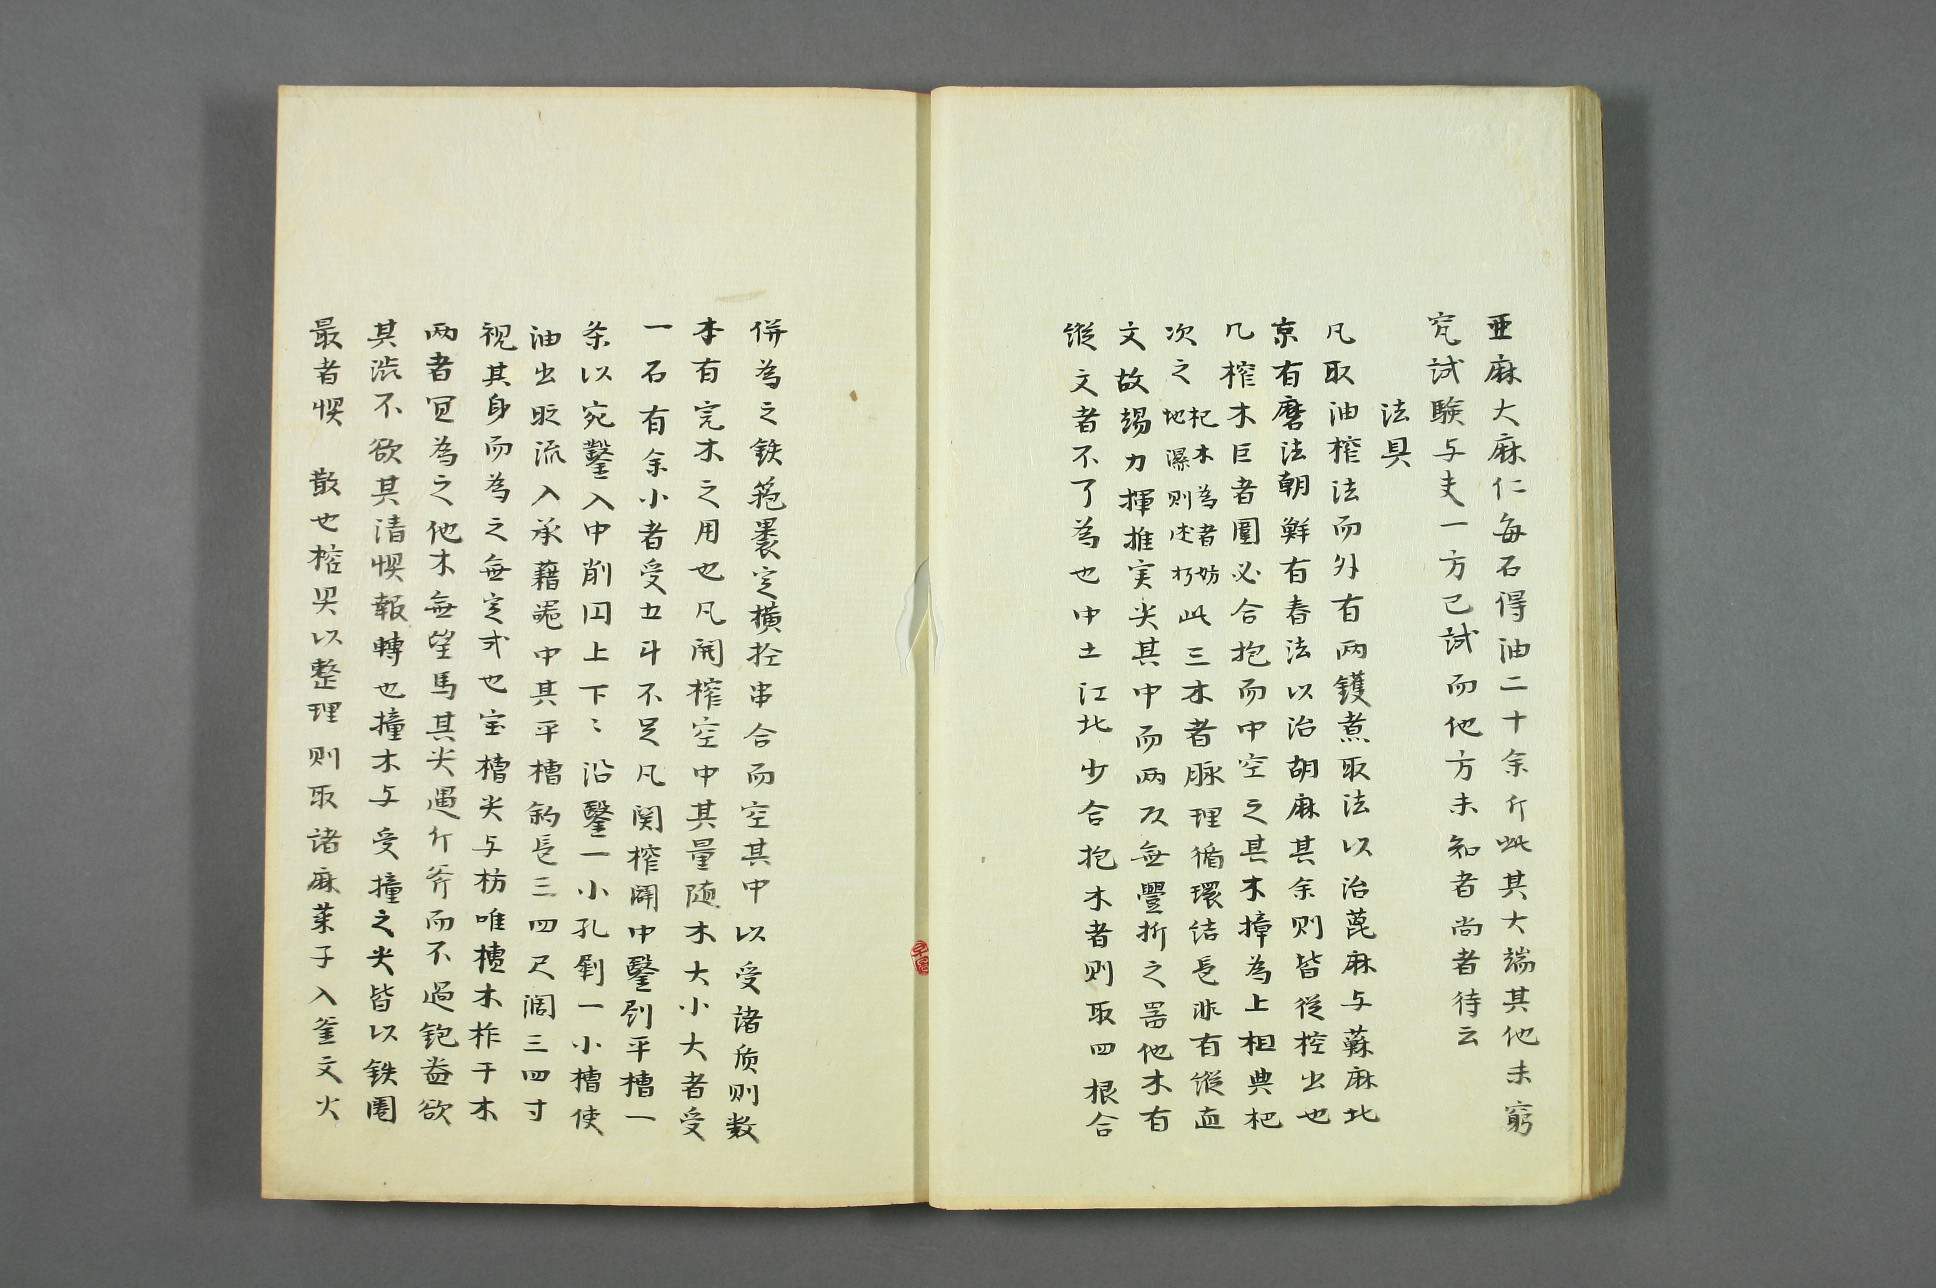 亜麻大麻仁每石得油二十余斤此其大端其他未窮
究試験与夫一方已試而他方未知者尚者待云
法具
凡取油榨法而外有両鑊煮取法以治蓖麻与蘇麻北
京有磨法朝鮮有舂法以治胡麻其余则皆從榨出也
凡榨木巨者圍必合抱而中空之其木樟為上檀与杞
次之 杞木為者妨地濕则速朽 此三木者脉理循環结長非有縱直
文故竭力揮推実尖其中而両头無璺折之患他木有
縱文者不了為也中土江北少合抱木者则取四根合
併為之鉄箍裹定横拴串合而空其中以受诸质则数
本有完木之用也凡開榨空中其量随木大小大者受
一石有余小者受五斗不足凡開榨闢中鑿刓平槽一
条以宛鑿入中削囙上下沿鑿一小孔剮一小槽使
油出时流入承藉器中其平槽約長三四尺阔三四寸
視其身而為之無定式也实槽尖与枋唯檀木柞子木
両者宜為之他木無望焉其尖過斤斧而不過鉋盖欲
其渋不欲其清惧報轉也撞木与受撞之尖皆以鉄圏
最者惧 散也榨具以整理则取诸麻菜子入釜文火